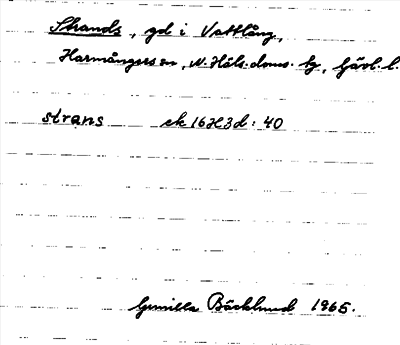 Strands, gd i Vattlång,
Harmångers sn, N. Häls. doms. hg, Gävl. l.
strans ek 16H3d: 40
Gunilla Bäcklund 1965.